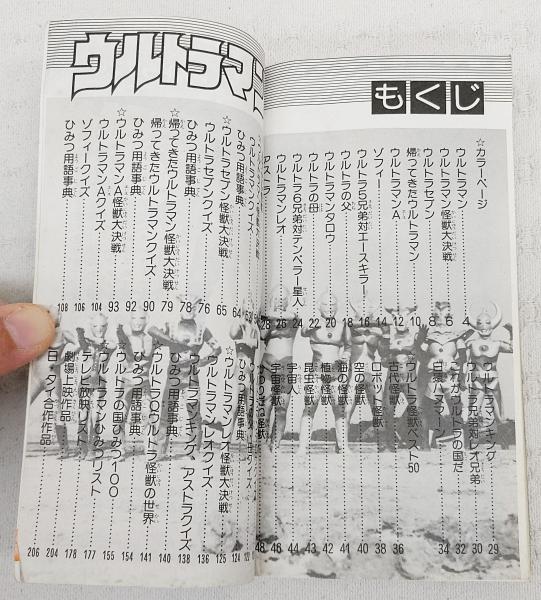 もくじ
☆カラーページ
ウルトラマン……4
ウルトラマン怪獣大決戦……6
ウルトラセブン……8
帰ってきたウルトラマン……10
ウルトラマンA……12
ゾフィー……14
ウルトラ5兄弟対エースキラー……16
ウルトラの父……18
ウルトラマンタロウ……20
ウルトラの母……22
ウルトラ6兄弟対テンペラー星人……24
ウルトラマンレオ……26
アストラ……28
ウルトラマンキング……29
ウルトラ兄弟対レオ兄弟……30
これがウルトラの国だ……32
白猿ハヌマーン……34
☆ウルトラ怪獣ベスト50
古代怪獣……36
ロボット怪獣……38
空の怪獣……40
海の怪獣……41
植物怪獣……42
昆虫怪獣……44
宇宙人……46
宇宙怪獣……48
ウルトラマン
ウルトラマンクイズ
ひみつ用語事典……64
☆ウルトラセブン怪獣大決戦……65
ウルトラセブンクイズ……76
ひみつ用語事典……78
☆帰ってきたウルトラマン怪獣大決戦……79
帰ってきたウルトラマンクイズ……90
ひみつ用語事典……92
☆ウルトラマンA怪獣大決戦……93
ウルトラマンAクイズ……104
ゾフィークイズ……106
ひみつ用語事典……108
ひみつ用語事典
☆ウルトラマンレオ怪獣大決戦……124
ウルトラマンレオクイズ……136
ウルトラマンキング、アストラクイズ……139
ひみつ用語事典……138
☆ウルトラQウルトラ怪獣の世界……140
ひみつ用語事典……141
☆ウルトラの国ひみつ100……154
ウルトラマンひみつリスト……155
テレビ放映リスト……177
劇場上映作品……178
日・タイ合作作品……204
206